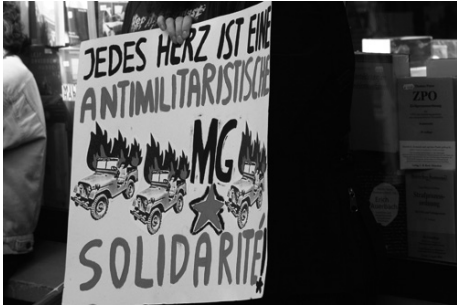 JEDES HERZ IST EINE
ANTIMILITARISTISCHE
MG
SOLIDARITÉ!
ZPO